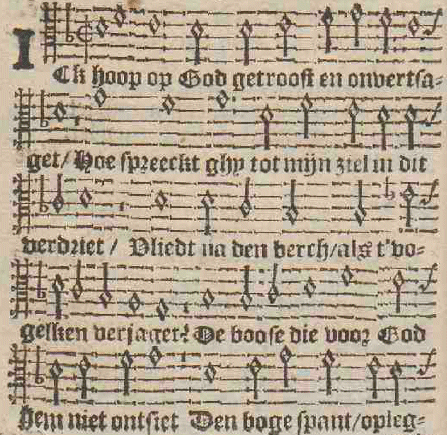 ICk hoop op God getroost en onvertsa-
get/ Hoe spreeckt ghy tot mijn ziel in dit
verdriet/ Vliedt na den berch/als t'vo-
gelken verjaget? De boose die voor God
hem niet ontsiet Den boge spant/opleg-